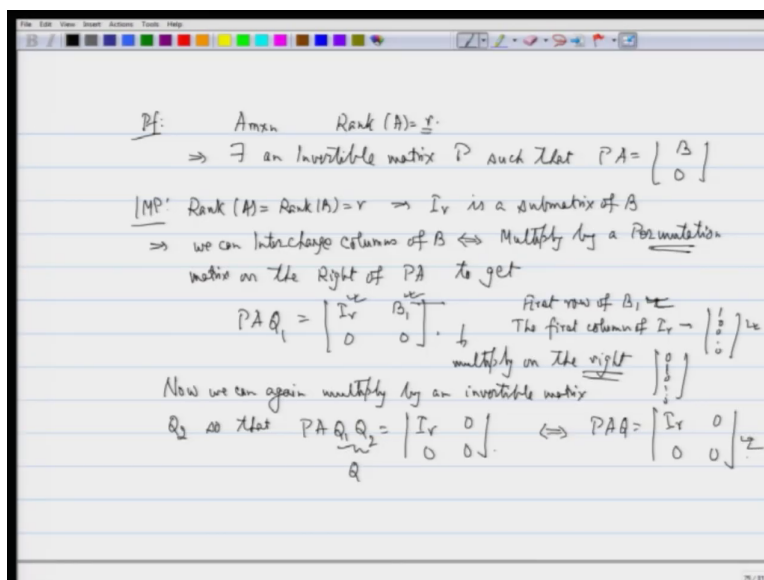 File Edit View Insert Actions Tools Help
Pf: A_{m×n} Rank (A) = r.
⇒ ∃ an Invertible matrix P such that PA = [B; 0]
IMP: Rank (A) = Rank (A) = r ⇒ I_r is a submatrix of B
⇒ we can Interchange columns of B ⇔ Multiply by a Permutation
matrix on the Right of PA to get
PAQ_1 = [I_r B_1; 0 0].
First row of B_1
The first column of I_r → [1 0 : 0]
multiply on the right [0 0 : 0]
Now we can again multiply by an invertible matrix
Q_2 so that PAQ_1Q_2 = [I_r 0; 0 0]. ⇔ PAQ = [I_r 0; 0 0]
Q